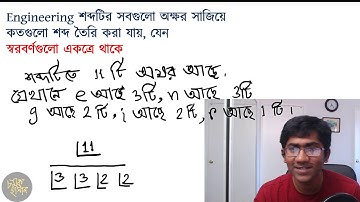 Engineering শব্দটির সবগুলো অক্ষর সাজিয়ে
কতগুলো শব্দ তৈরি করা যায়, যেন
স্বরবর্ণগুলো একত্রে থাকে
শব্দটিতে 11 টি অক্ষর আছে.
যেখানে e আছে 3টি, n আছে 3টি
g আছে 2টি, i আছে 2টি, r আছে 1টি।
11
3 3 2 2